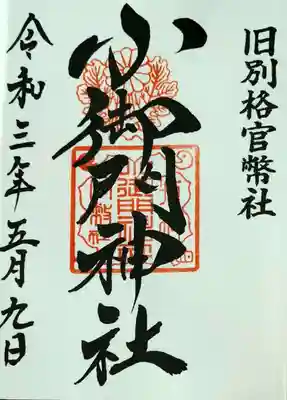 旧別格官幣社
小御門神社
令和三年五月九日